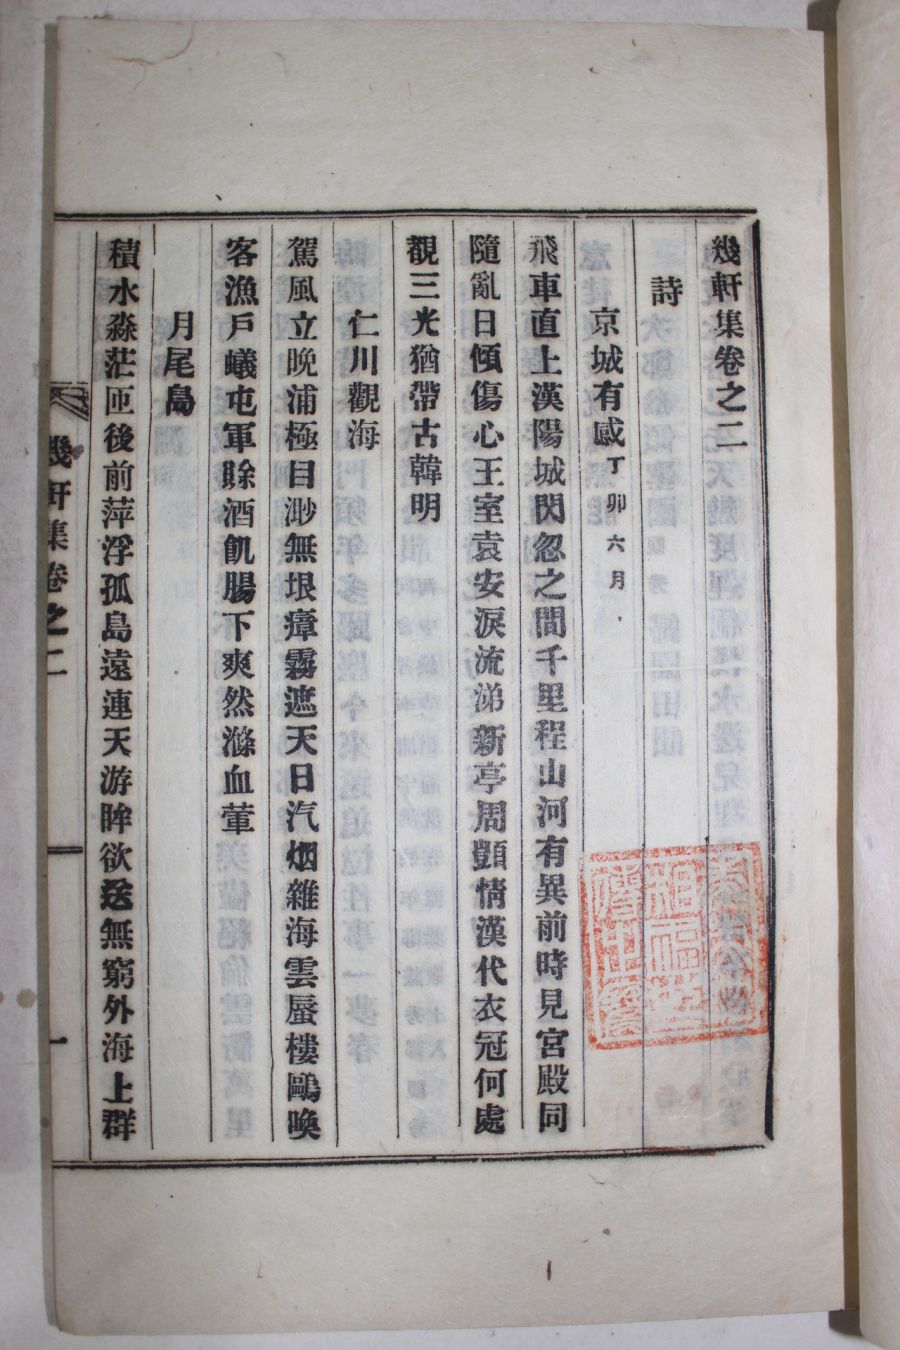 幾軒集卷之二
詩
京城有感丁卯六月
飛車直上漢陽城閃忽之間千里程山河有異前時見宮殿同
隨亂日傾傷心王室袁安淚流涕新亭周顗情漢代衣冠何處
觀三光猶帶古韓明
仁川觀海
駕風立晩浦極目渺無垠瘴霧遮天日汽烟雜海雲蜃樓鷗喚
客漁戶蟻屯軍賖酒飢腸下爽然滌血葷
月尾島
積水淼茫匝後前萍浮孤島遠連天游眸欲送無窮外海上群
幾軒集卷之二
一